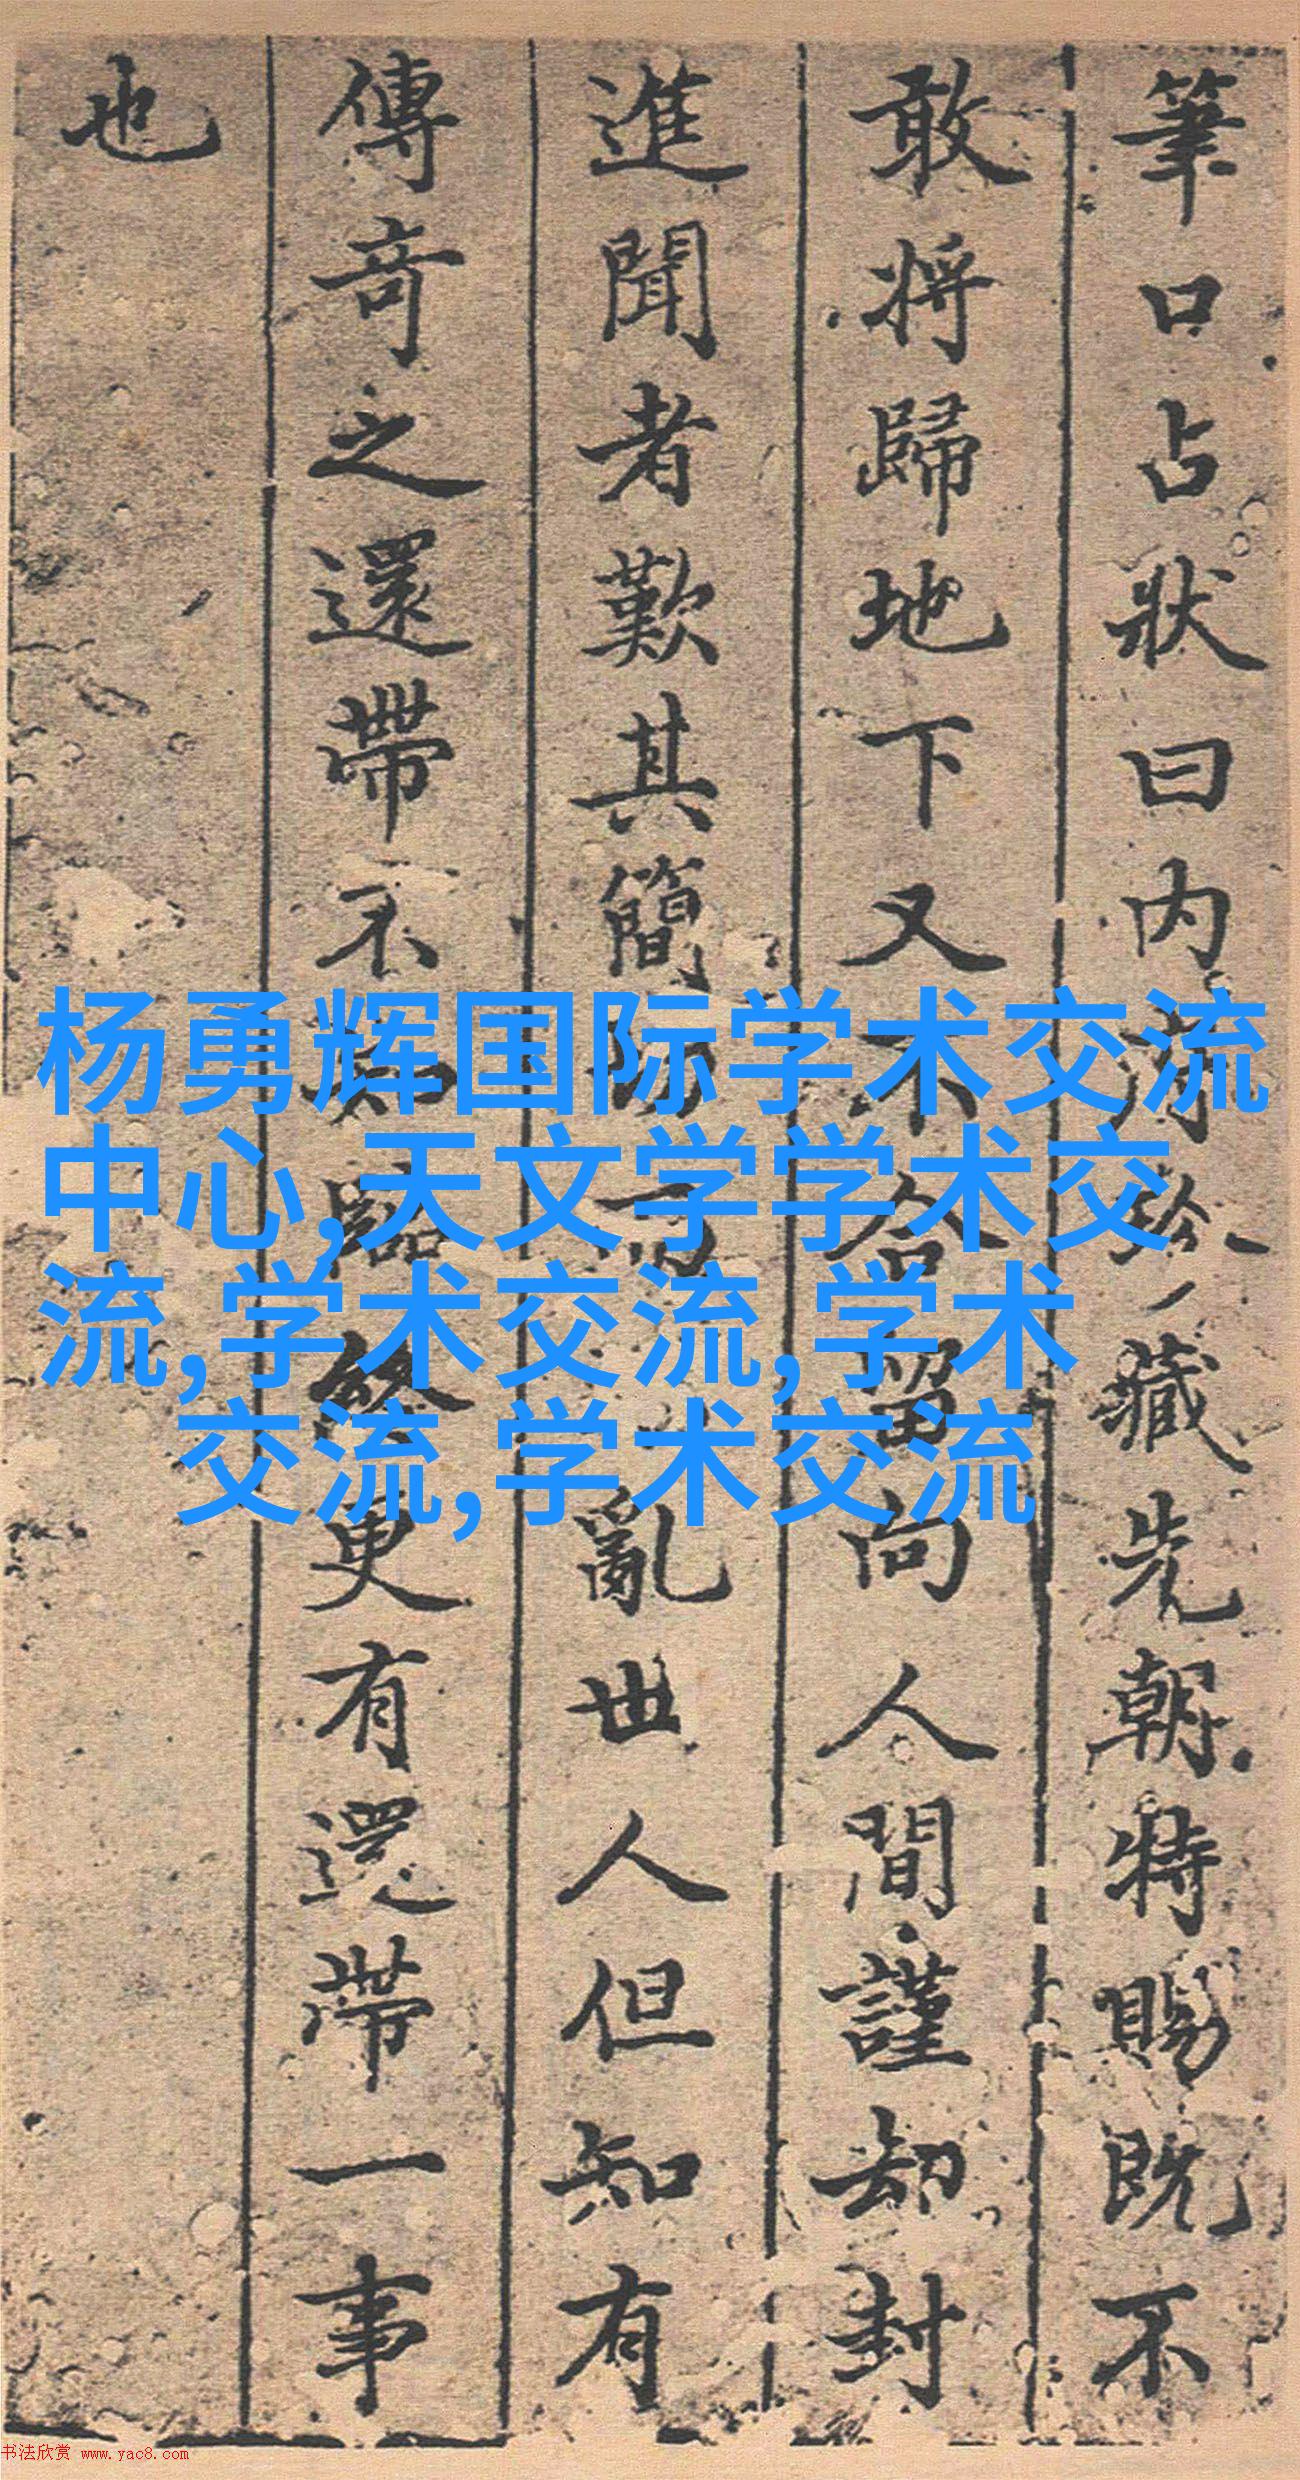 筆口占狀曰内府珍藏先朝特賜既不
敢將歸地下又不合留向人間謹却封
進聞者歎其簡而亂世人但知有
傳奇之還帶不知臨終更有還帶一事
也
杨勇辉国际学术交流
中心,天文学学术交
流,学术交流,学术
交流,学术交流
书法欣赏 www.yac8.com